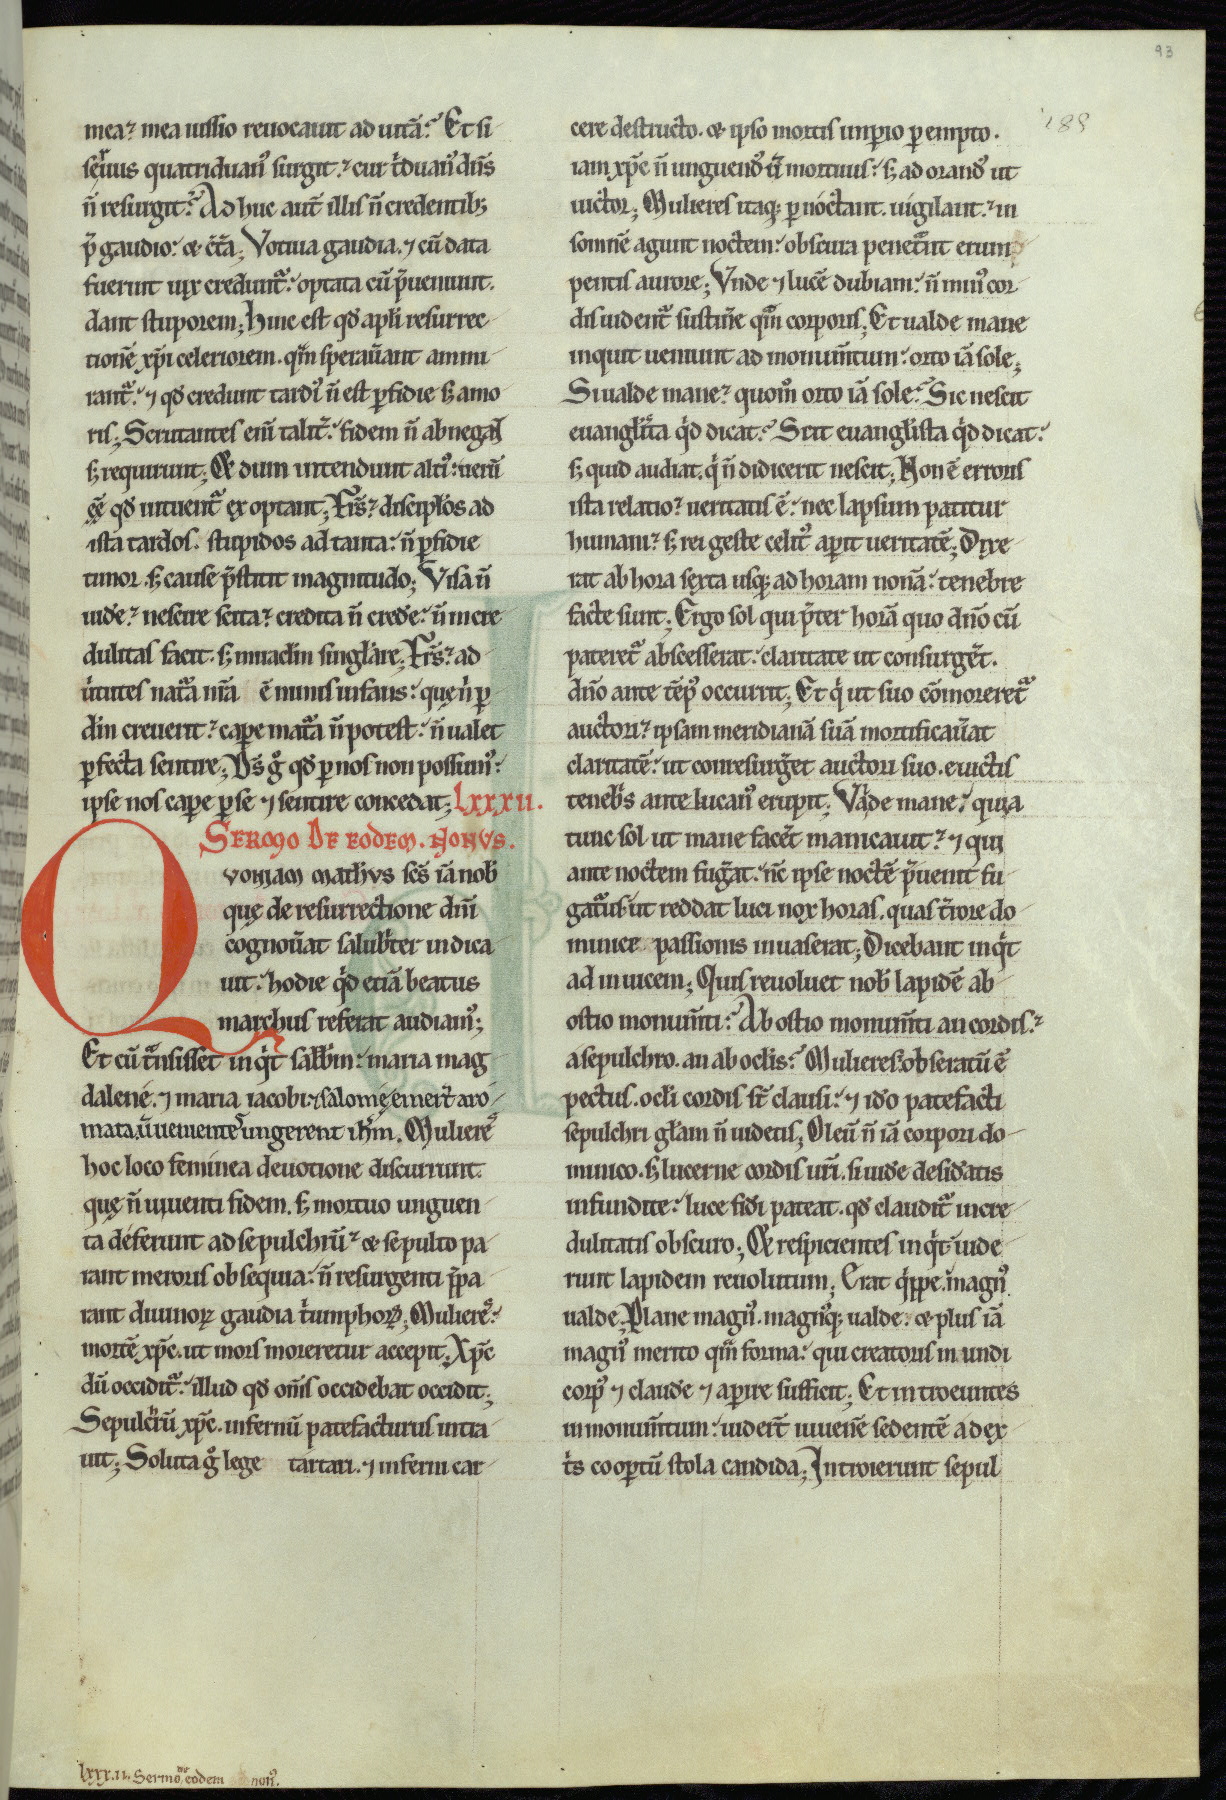 93
189
mea? mea iussio reuocauit ad uitā? Et si
seruus quatriduanꝰ surgit? cur tͥduanꝰ dn̄s
n̄ resurgit? Ad huc aut̄ illis n̄ credentibꝫ
p̄ gaudio: & cͣt̄a; Votiua gaudia ⁊ cū data
fuerint uix credunt᷑: optata cū p̄ueniunt
dant stuporem; Hinc est qd̄ apl̄i resurrec
tionē xp̄i celeriorem qͣm sperauͣant ammi
rant᷑: ⁊ qd̄ credunt tardiꝰ n̄ est ꝑfidie sꝫ amo
ris; Scrutantes enī talit᷑: fidem n̄ abnegāt
sꝫ requirunt; & dum intendunt altiꝰ: uerū
eē qd̄ intuent᷑ exoptant; Fr̄s? discipl̄os ad
ista tardos. stupidos ad tanta: n̄ ꝑfidie
timor sꝫ cause p̄stitit magnitudo; Visa n̄
uide᷑? nescire scita? credita n̄ crede᷑: n̄ incre
dulitas facit. sꝫ miraclm̄ singl̄are; Fr̄s? ad
uͥtutes natͣa nr̄a ē nimis infans: quę n̄ ꝑ
dn̄m creuerit? cape᷑ matͣa n̄ potest: n̄ ualet
ꝑfecta sentire; Ds̄ gͦ qd̄ ꝑ nos non possumꝰ:
ipse nos cape᷑ ꝑ se ⁊ sentire concedat; lxxxii.
Sermo de eodem. nonus.
Quoniam matheus scs̄ iā nob̄
quę de resurrectione dn̄i
cognouͣat salubͥter indica
uit: hodie qͥd etiā beatus
marchus referat audiamꝰ;
Et cū tͣnsisset inqͥt sabb̄m: maria mag
dalenę. ⁊ maria iacobi ⁊ salomę emert̄ aro
mata ut uenientes ungerent ih̄m. Mulieres
hoc loco feminea deuotione discurrunt
quę n̄ uiuenti fidem. sꝫ mortuo unguen
ta deferunt ad sepulchrū? & sepulto pa
rant meroris obsequia: n̄ resurgenti p̄pa
rant diuinoꝝ gaudia tͥumphoꝝ; Mulieres:
mortē xp̄c. ut mors moreretur accepit; Xp̄c
dū occidit᷑: illud qd̄ om̄s occidebat occidit;
Sepulchrū xp̄c. infernū patefacturus intra
uit; Soluta gͦ lege tartari. ⁊ inferni car
cere destructo. & ipso mortis imꝑio ꝑempto.
iam xp̄c n̄ unguendꝰ ut mortuus: sꝫ adorandꝰ ut
uictor; Mulieres itaqꝫ ꝑnoctant. uigilant? in
somnē agunt noctem: obscura penetͣnt erum
pentis aurore; Vnde ⁊ lucē dubiam: n̄ minꝰ cor
dis uident᷑ sustine᷑ qͣm corporis; Et ualde mane
inquit ueniunt ad monum̄tum: orto iā sole;
Si ualde mane? quom̊ orto iā sole? Sic nescit
euangl̄ista qͥd dicat? Scit euangl̄ista qͥd dicat:
sꝫ quid audiat. qͥ n̄ didicerit nescit; Non ē erroris
ista relatio? ueritatis ē: nec lapsum patitur
humanū? sꝫ rei geste celitꝰ aꝑit ueritatē; Dixe
rat ab hora sexta usqꝫ ad horam nonā: tenebre
facte sunt; Ergo sol qui p̄ter horā quo dn̄o cū
pateret᷑ abscesserat: claritate ut consurge᷑t.
dn̄o ante tēpꝰ occurrit; Et qͥ ut suo cōmoreret᷑
auctori? ipsam meridianā suā mortificauͣat
claritatē: ut conresurge᷑t auctori suo. euictis
tenebͥs antelucanꝰ erupit; Valde mane: quia
tunc sol ut mane face᷑t manicauit? ⁊ qui
ante noctem fuge᷑at. nc̄ ipse noctē p̄uenit fu
gatͣus. ut reddat luci nox horas. quas tr̄rore do
minice passionis inuaserat; Dicebant inqͥt
ad inuicem; Quis reuoluet nob̄ lapidē ab
ostio monum̄ti: Ab ostio monum̄ti an cordis?
a sepulchro. an ab oclis? Mulieres: obseratū ē
pectus. ocl̄i cordis st̄ clausi: ⁊ ido patefacti
sepulchri gl̄am n̄ uidetis; Oleū n̄ iā corpori do
minico. sꝫ lucerne cordis ur̄i. si uide᷑ deside᷑atis
infundite: luce fidi pateat. qd̄ claudit᷑ incre
dulitatis obscuro; & respicientes inqͥt uide
runt lapidem reuolutum; Erat qͥppe magnꝰ
ualde; Plane magnꝰ. magnꝰqꝫ ualde: & plus iā
magnꝰ merito qͣm forma: qui creatoris mundi
corpꝰ ⁊ claude᷑ ⁊ aperire sufficit; Et introeuntes
in monum̄tum: uidert̄ iuuenē sedentē ad ex
tͥs cooꝑtū stola candida; Introierunt sepul
lxxx.ii. Sermo de eodem nonꝰ.